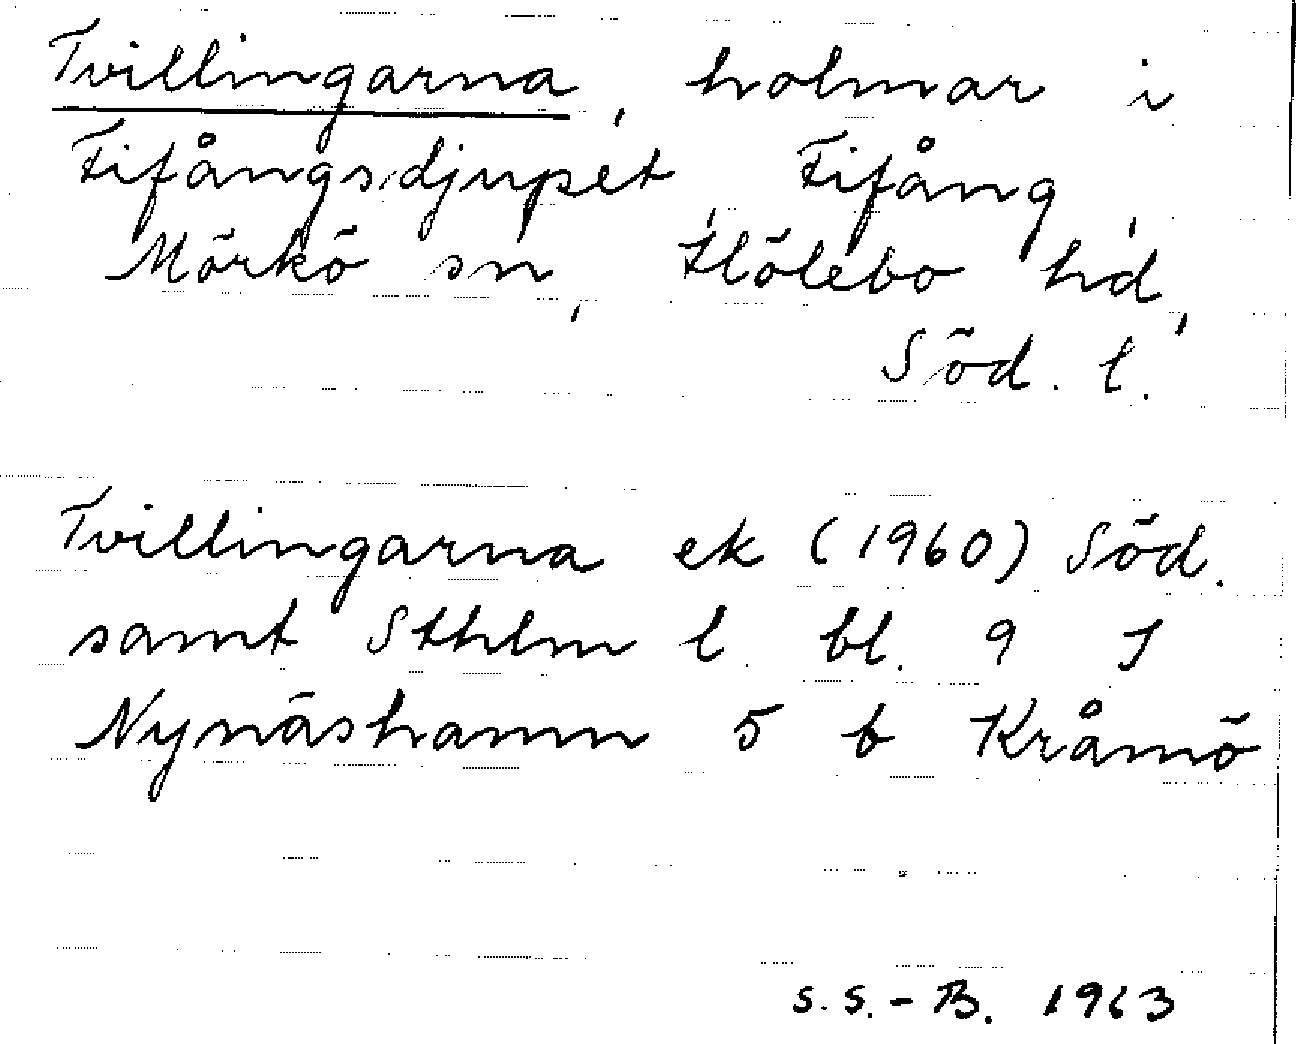 Tvillingarna, holmar i
Fifångsdjupet, Fifång,
Mörkö sn, Hölebo hd,
Söd. l.
Tvillingarna ek (1960) Söd.
samt Sthlm l. bl. 9 I
Nynäshamn 5 b Kråmö
S. S.-B. 1963